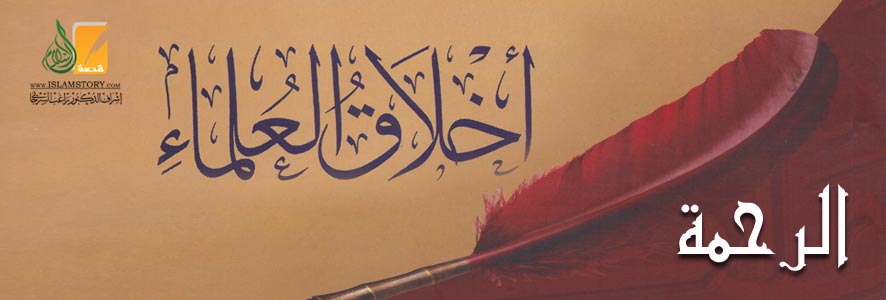 قصة
WWW.ISLAMSTORY.COM
إشراف الدكتور راغب السرجاني
أخلاق العُلماءِ
الرحمة